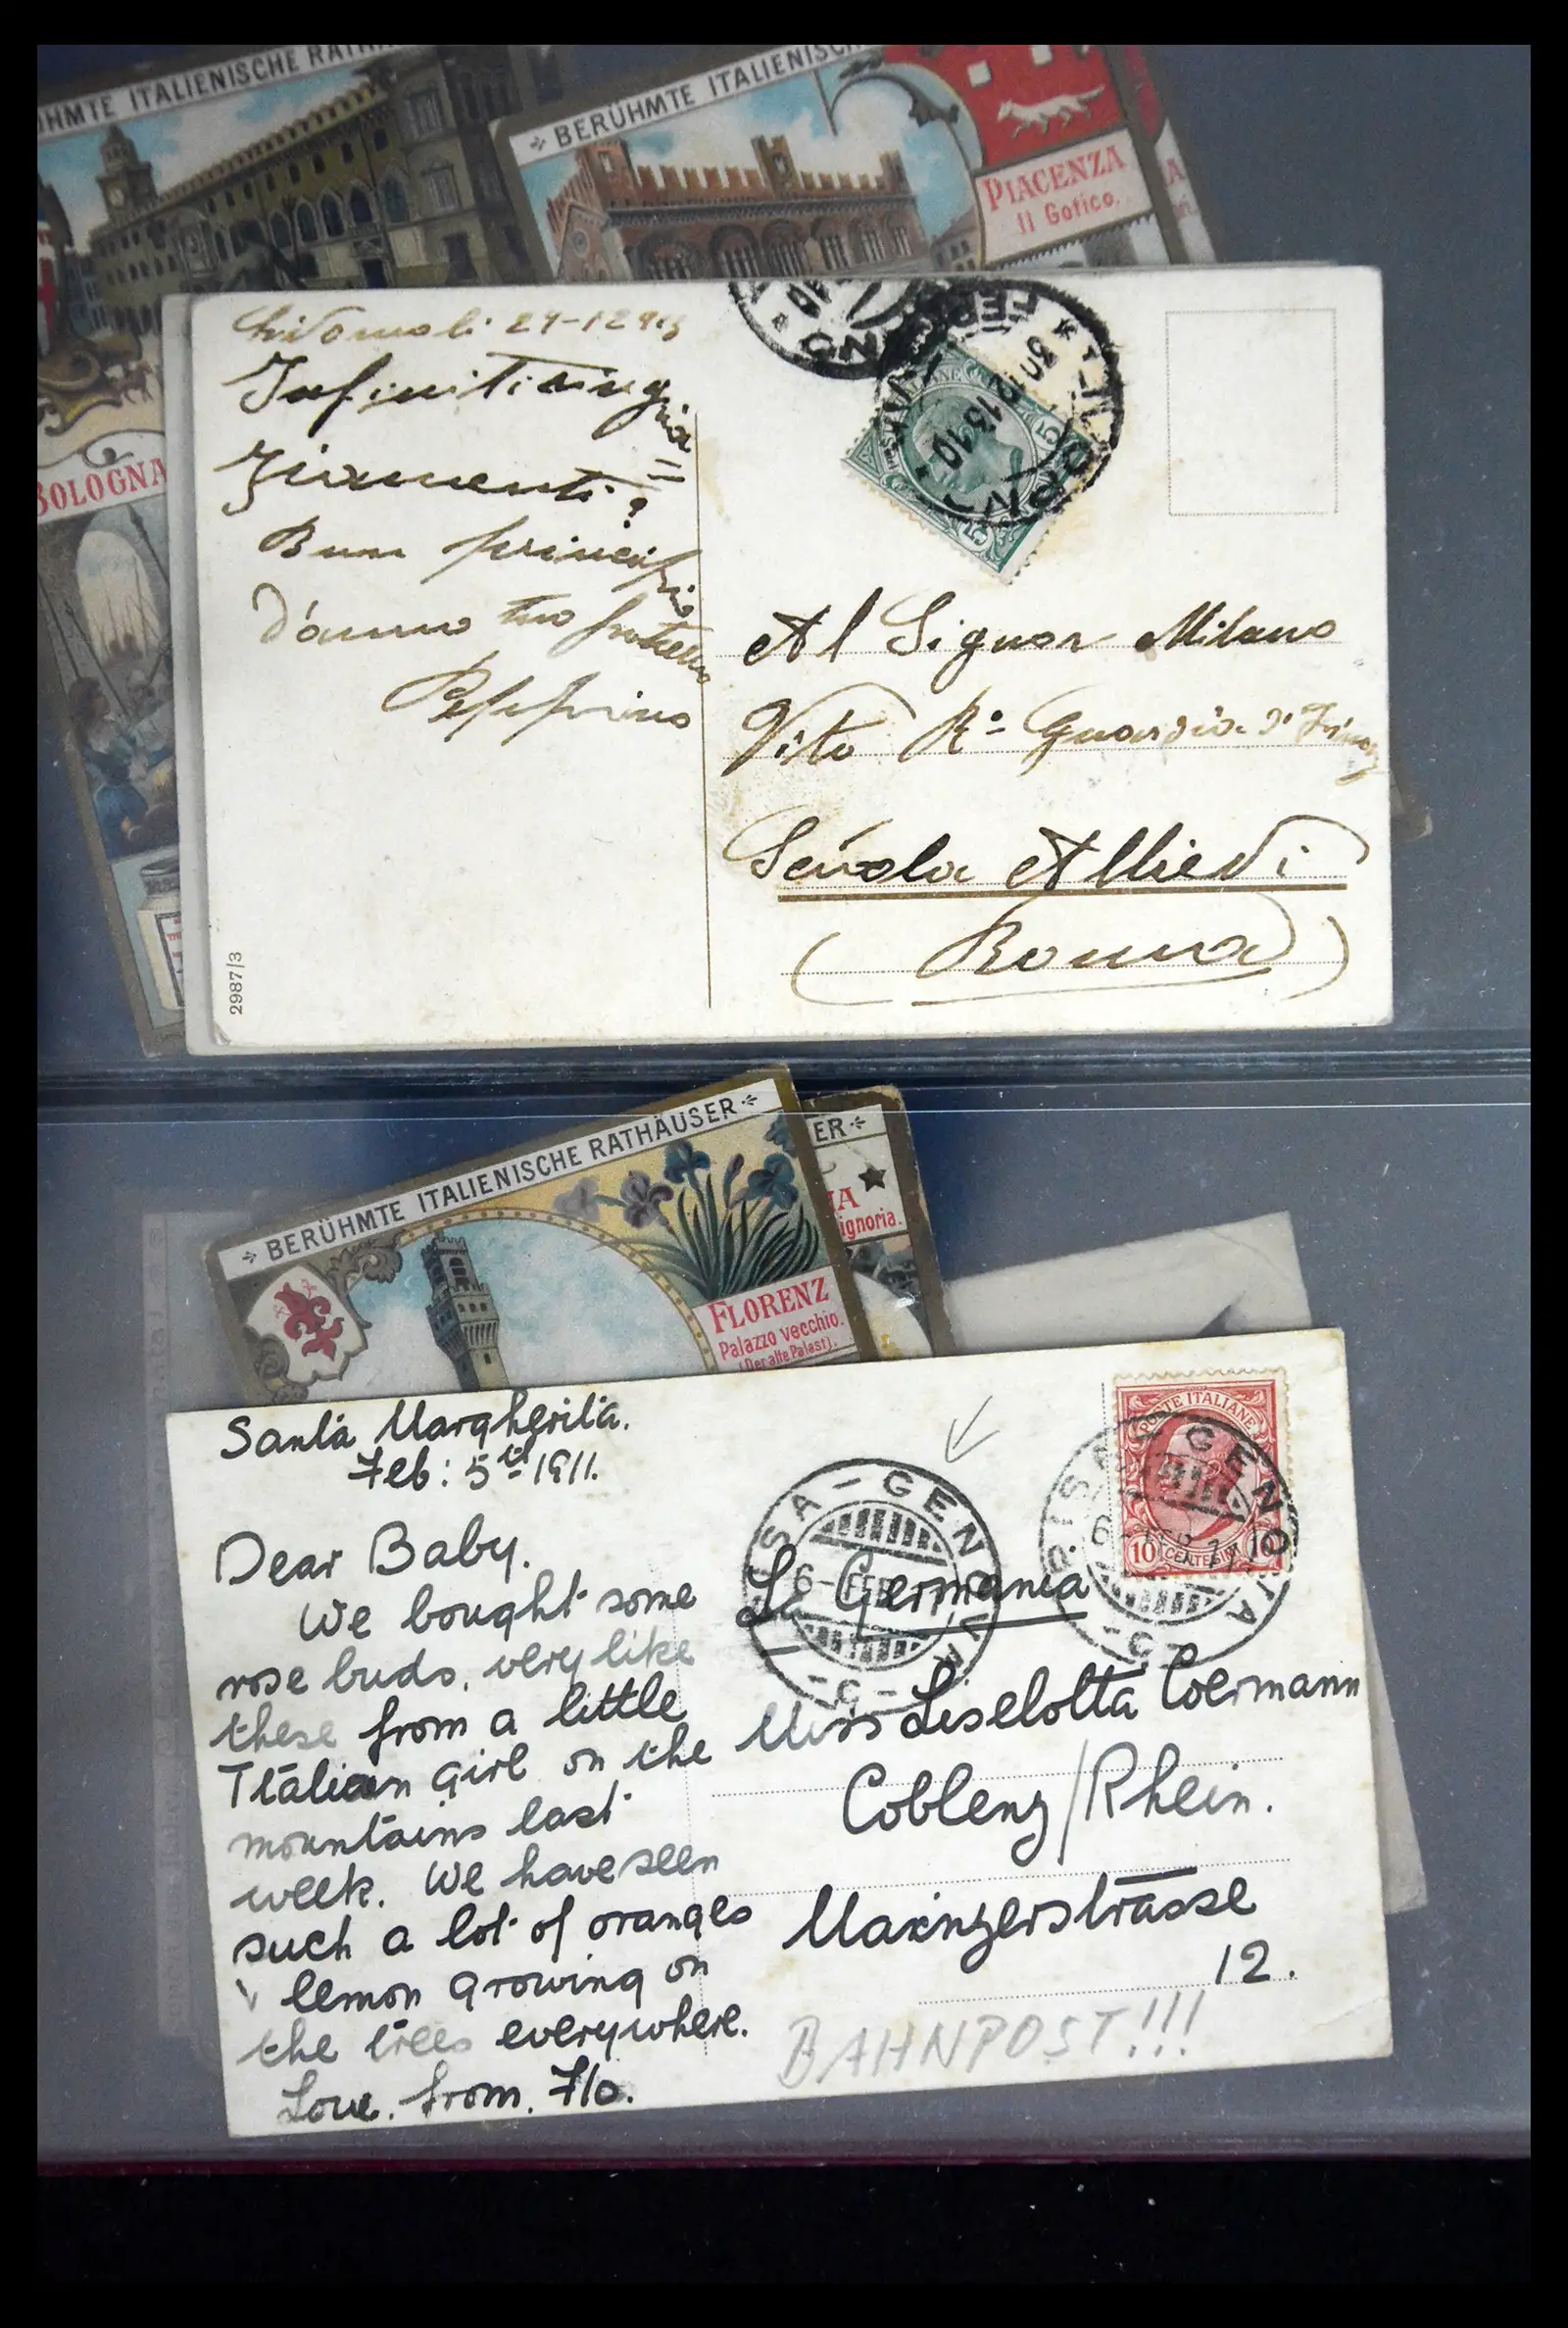 BERÜHMTE ITALIENISCHE RATH
BERÜHMTE ITALIENISCH
PIACENZA
Il Gotico.
BOLOGNA
29-12
Infiniti ringra=
ziamenti
Buon principio
d'anno tuo fratello
Peppino
5
30 12 13 10
Al Signor Milano
Vito Ra Guardia di Finanz
Scuola Allievi
(Roma)
2987/3
BERÜHMTE ITALIENISCHE RATHÄUSER
ER
FLORENZ
Palazzo vecchio.
(Der alte Palast).
ignoria.
Santa Margherita.
Feb: 5th 1911.
Dear Baby.
We bought some
rose buds, very like
these from a little
Italian girl on the
mountains last
week. We have seen
such a lot of oranges
lemon growing on
the trees everywhere.
Love. from. Flo.
POSTE ITALIANE
10 CENTESIMI 10
PISA-GENOVA
6-FEB 11
PISA-GENOVA
6-FEB 11
La Germania
Miss Liselotta Coermann
Coblenz/Rhein.
Mainzerstrasse
12.
BAHNPOST!!!